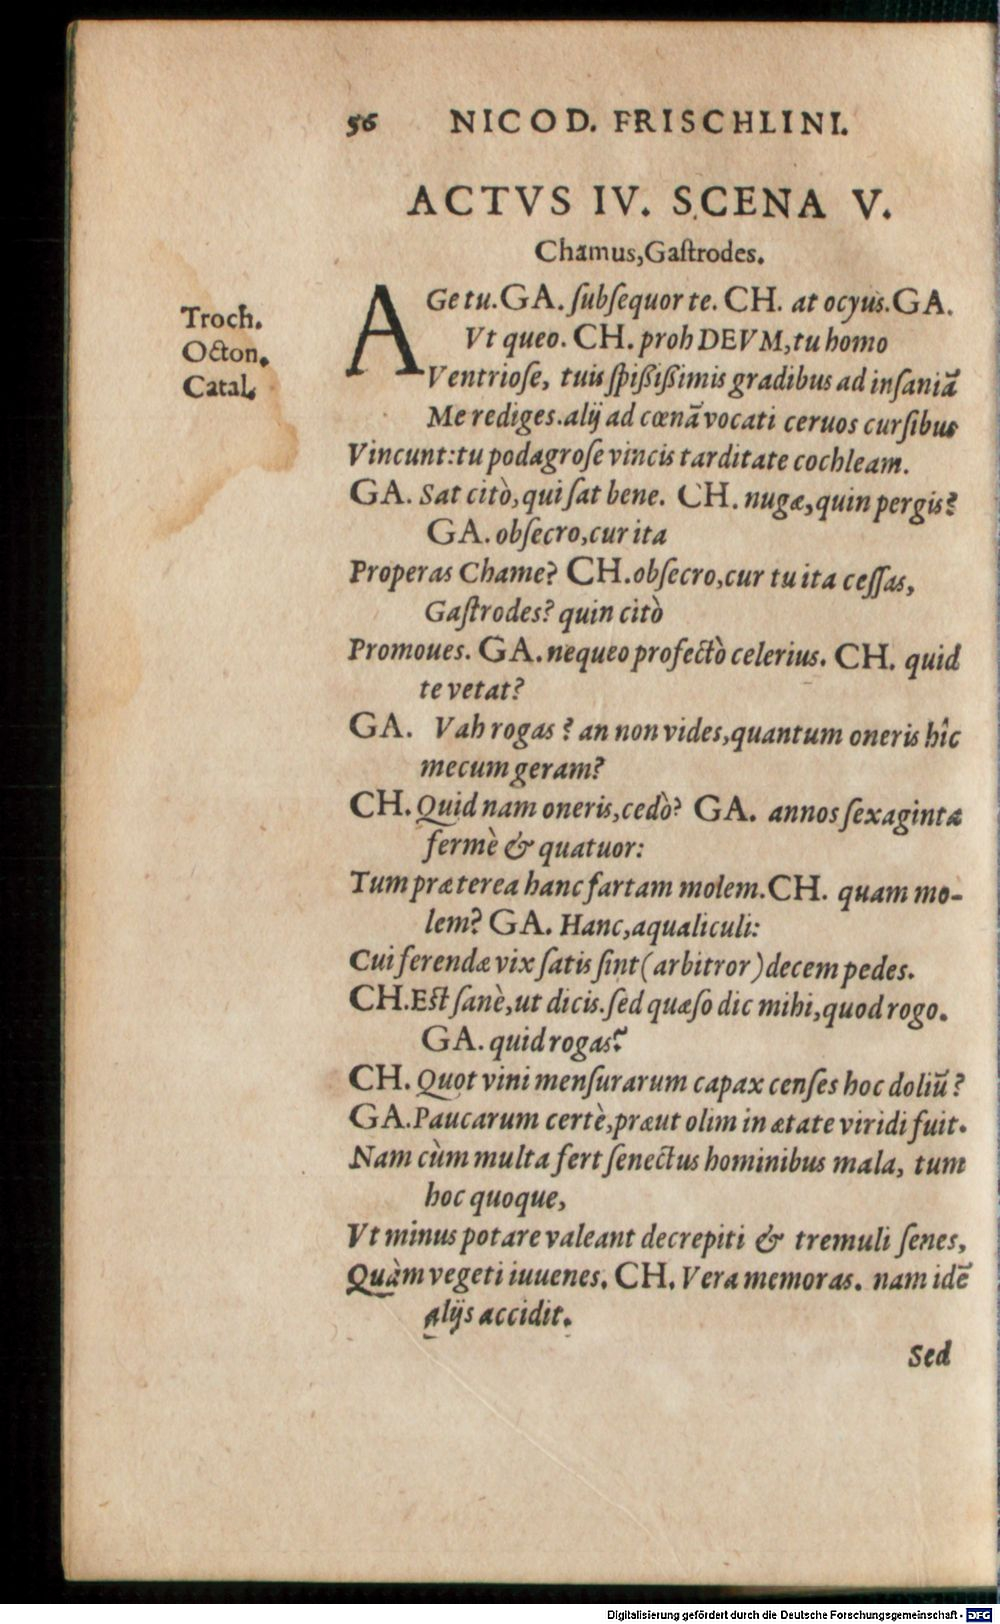 56 NICOD. FRISCHLINI.
ACTVS IV. SCENA V.
Chamus, Gaſtrodes.
Troch.
Octon.
Catal.
AGe tu. GA. ſubſequor te. CH. at ocyùs. GA.
Vt queo. CH. proh DEVM, tu homo
Ventrioſe, tuis ſpißißimis gradibus ad inſaniā
Me rediges. alij ad cœnā vocati ceruos curſibus
Vincunt: tu podagroſe vincis tarditate cochleam.
GA. Sat citò, qui ſat bene. CH. nugæ, quin pergis?
GA. obſecro, cur ita
Properas Chame? CH. obſecro, cur tu ita ceſſas,
Gaſtrodes? quin citò
Promoues. GA. nequeo profectò celerius. CH. quid
te vetat?
GA. Vah rogas? an non vides, quantum oneris hîc
mecum geram?
CH. Quid nam oneris, cedò? GA. annos ſexaginta
fermè & quatuor:
Tum præterea hanc fartam molem. CH. quam mo-
lem? GA. Hanc, aqualiculi:
Cui ferendæ vix ſatis ſint (arbitror) decem pedes.
CH. Eſt ſanè, ut dicis. ſed quæſo dic mihi, quod rogo.
GA. quid rogas?
CH. Quot vini menſurarum capax cenſes hoc doliū?
GA. Paucarum certè, præut olim in ætate viridi fuit.
Nam cùm multa fert ſenectus hominibus mala, tum
hoc quoque,
Vt minus potare valeant decrepiti & tremuli ſenes,
Quàm vegeti iuuenes. CH. Vera memoras. nam idē
alijs accidit.
Sed
Digitalisierung gefördert durch die Deutsche Forschungsgemeinschaft - DFG